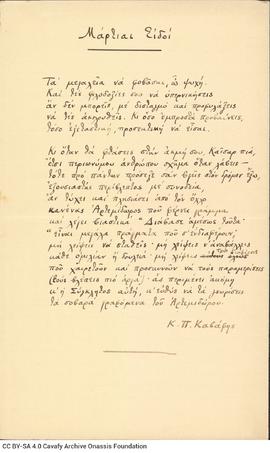 Μάρτιαι Ειδοί
Τα μεγαλεία να φοβάσαι, ω ψυχή.
Και τες φιλοδοξίες σου να υπερνικήσεις
αν δεν μπορείς, με δισταγμό και προφυλάξεις
να τες ακολουθείς. Κι όσο εμπροστά προβαίνεις,
τόσο εξεταστική, προσεκτική να είσαι.
Κι όταν θα φθάσεις στην ακμή σου, Καίσαρ πια,
έτσι περιωνύμου ανθρώπου σχήμα όταν λάβεις—
τότε προ πάντων πρόσεξε σαν βγεις στον δρόμον έξω,
εξουσιαστής περίβλεπτος με συνοδεία,
αν τύχει και πλησιάσει από τον όχλο
κανένας Αρτεμίδωρος που φέρνει γράμμα
και λέγει βιαστικά "Διάβασε αμέσως τούτα
"είναι μεγάλα πράγματα που σ' ενδιαφέρουν,"
μη λείψεις να σταθείς· μη λείψεις ν' αναβάλεις
κάθε ομιλίαν ή δουλειά· μη λείψεις τους διαφόρους
που χαιρετούν και προσκυνούν να τους παραμερίσεις
(τους βλέπεις πιο αργά)· ας περιμένει ακόμη
κ' η Σύγκλητος αυτή, κ' ευθύς να τα γνωρίσεις
τα σοβαρά γραφόμενα του Αρτεμιδώρου.
Κ. Π. Καβάφης
CC BY-SA 4.0 Cavafy Archive Onassis Foundation